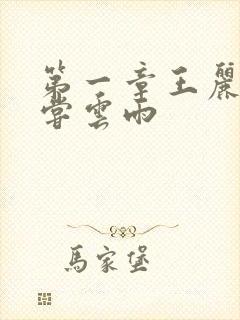 第一章王麗
嘗雲雨
馬家堡